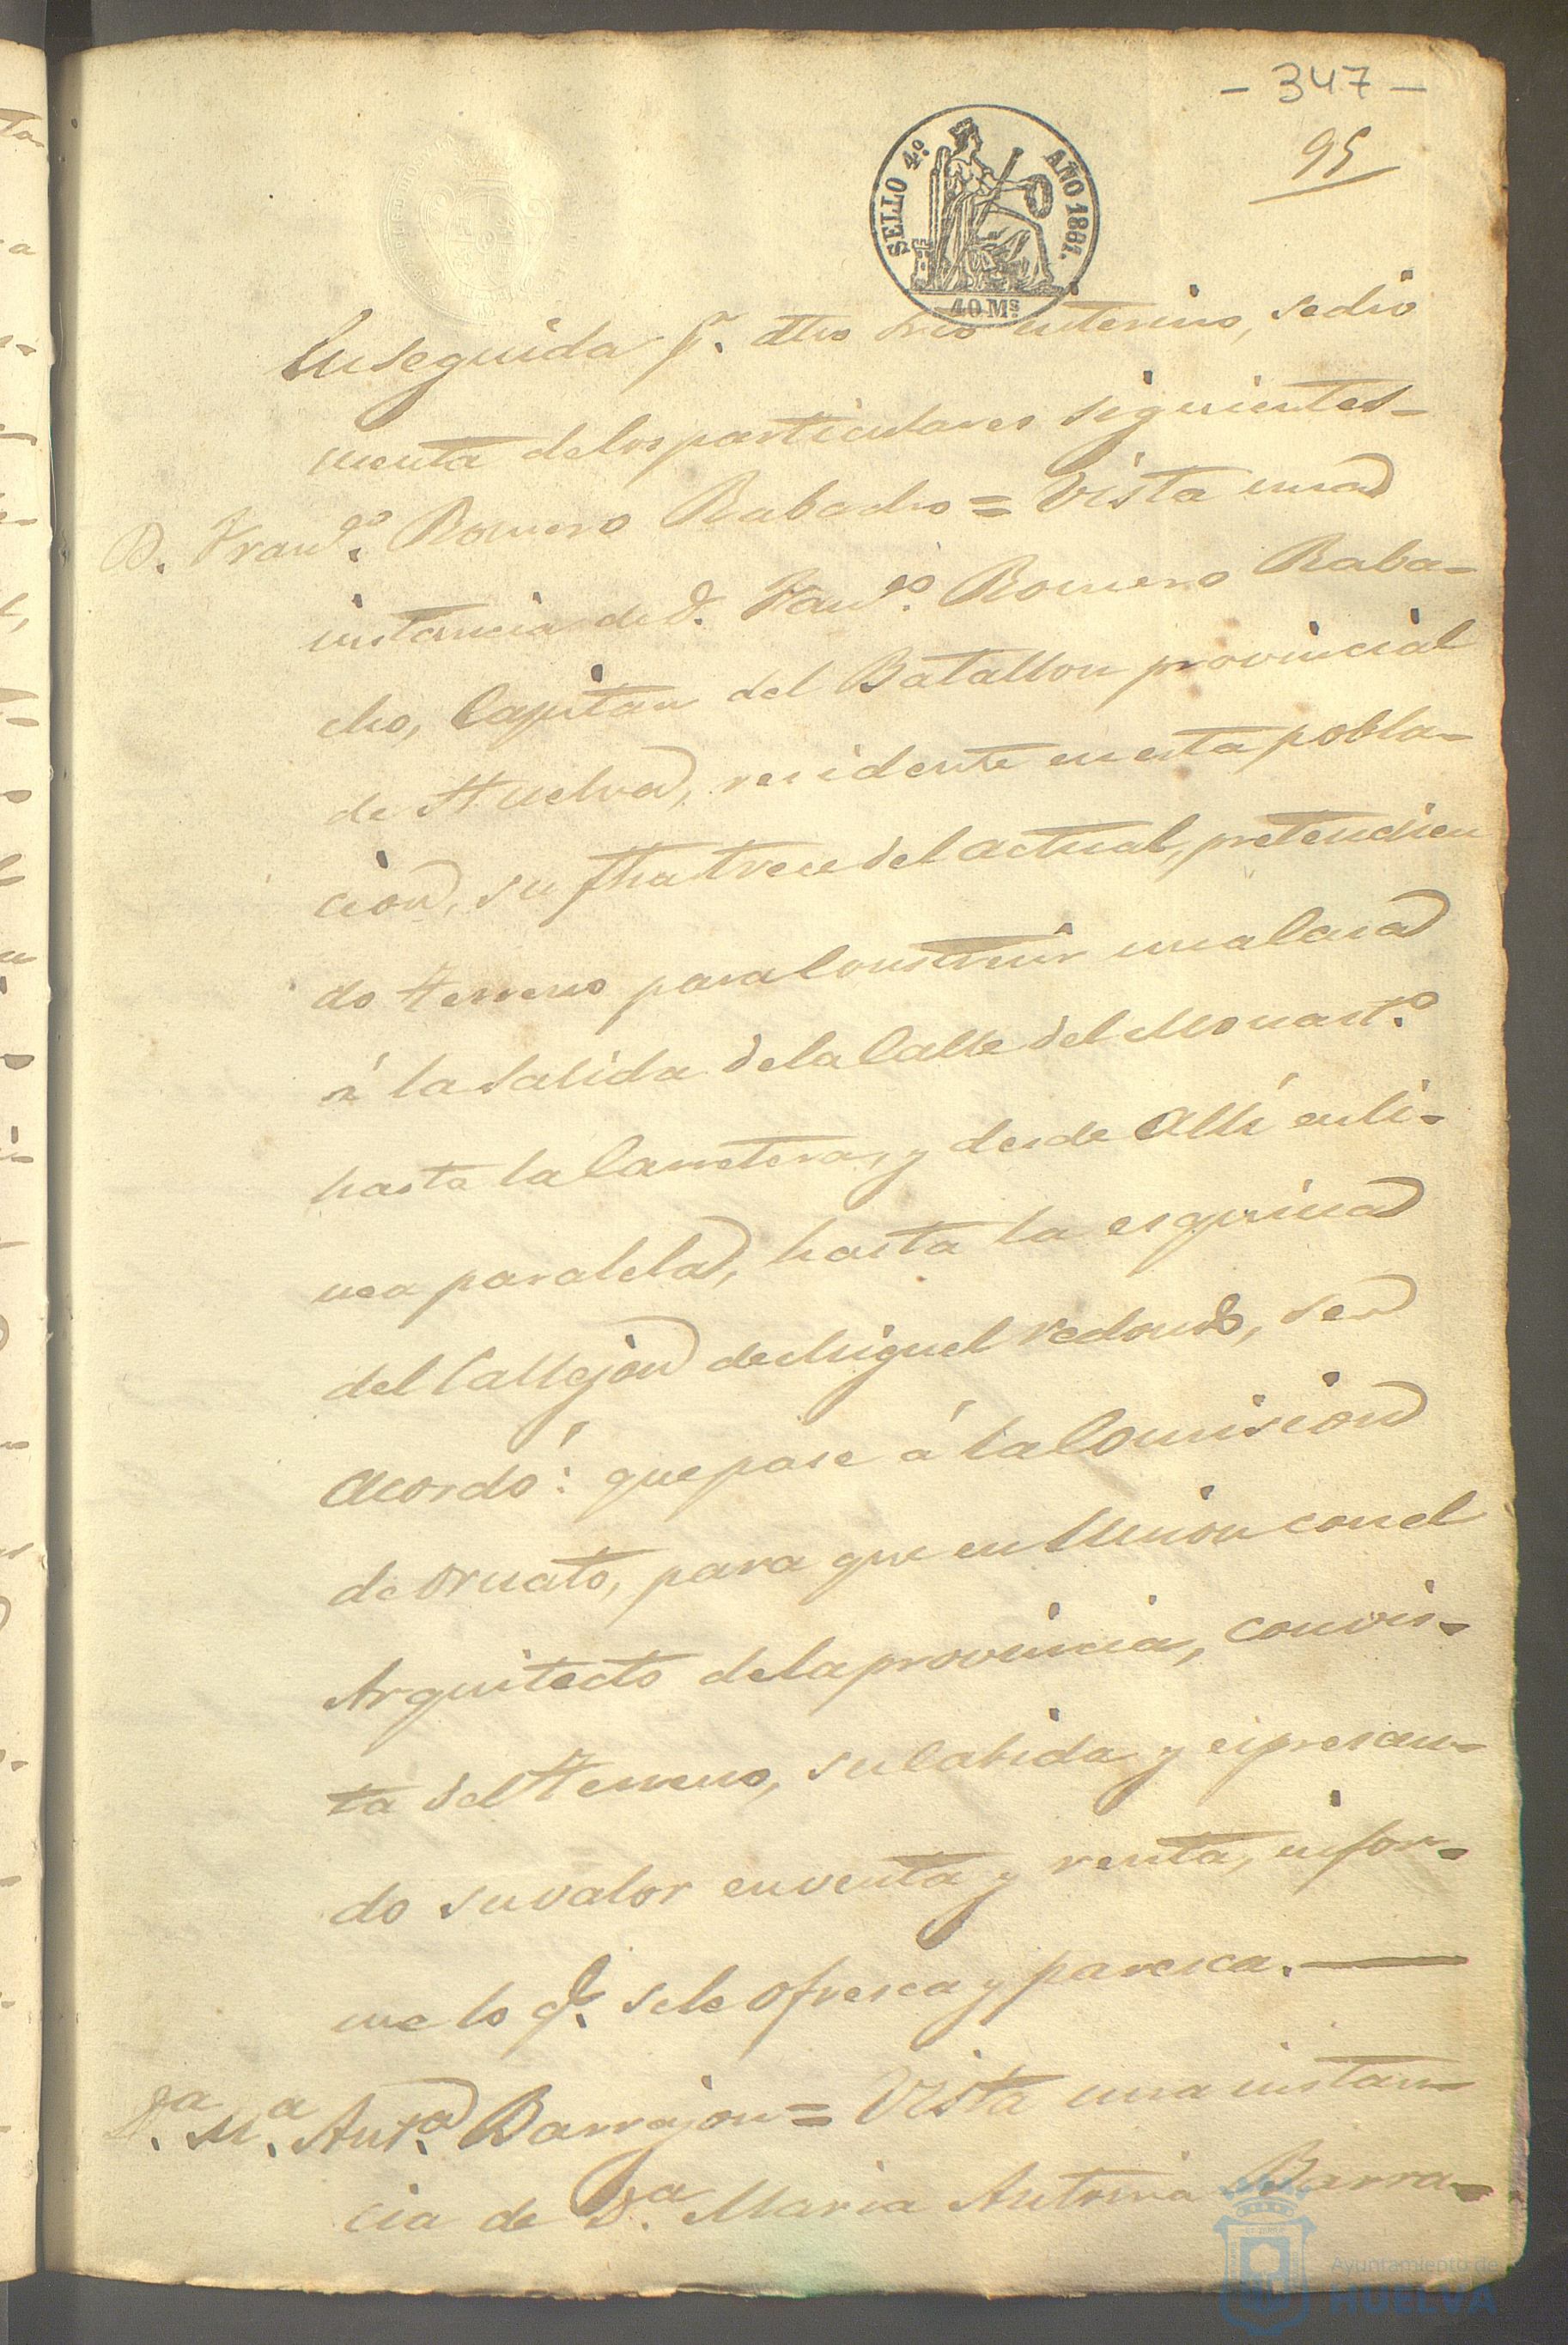 - 347 -
95
SELLO 4.º AÑO 1861.
40 Ms.
Enseguida pr. dho Srio interino, sedio
cuenta delos particulares siguientes-
D. Franco. Romero Rabacho = Vista una
instancia de D. Franco. Romero Raba-
cho, Capitan del Batallon provincial
de Huelva, residente en esta pobla-
cion, su fha trece del actual, pretendien
do terreno para Construir una Casa
á la salida de la Calle del Monasto.
hasta la Carretera, y desde Allí en li-
nea paralela, hasta la esquina
del Callejon de Miguel redondo, se
Acordó: que pase á la Comision
de Ornato, para que en Union con el
Arquitecto de la provincia, con vis-
ta del terreno, su Cabida y espresan-
do su valor en venta y renta, infor-
me lo q. sele ofresca y paresca.
Da. Ma. Anta. Barrajon = Vista una instan-
cia de Da. Maria Antonia Barra-
Ayuntamiento de
HUELVA